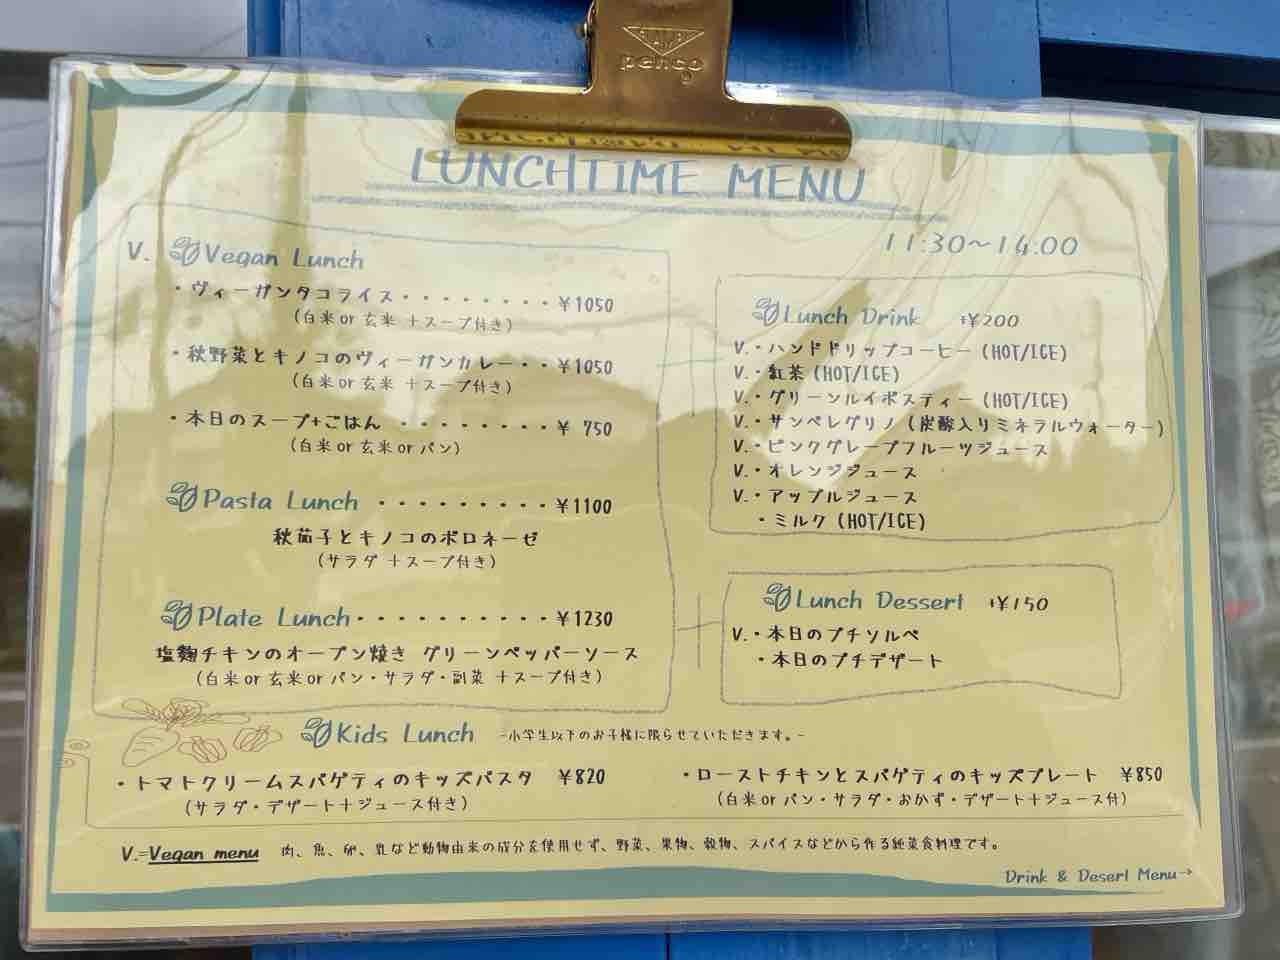 penco
LUNCHTIME MENU
11:30～14:00
V. Vegan Lunch
・ヴィーガンタコライス・・・・・・・・¥1050
(白米 or 玄米 ＋スープ付き)
・秋野菜とキノコのヴィーガンカレー・・¥1050
(白米 or 玄米 ＋スープ付き)
・本日のスープ+ごはん ・・・・・・・・¥ 750
(白米 or 玄米 or パン)
Pasta Lunch ・・・・・・・・・¥1100
秋茄子とキノコのボロネーゼ
(サラダ ＋スープ付き)
Plate Lunch・・・・・・・・・・¥1230
塩麹チキンのオーブン焼き グリーンペッパーソース
(白米 or 玄米 or パン・サラダ・副菜 ＋スープ付き)
Lunch Drink +¥200
V.・ハンドドリップコーヒー (HOT/ICE)
V.・紅茶 (HOT/ICE)
V.・グリーンルイボスティー (HOT/ICE)
V.・サンペレグリノ (炭酸入りミネラルウォーター)
V.・ピンクグレープフルーツジュース
V.・オレンジジュース
V.・アップルジュース
・ミルク (HOT/ICE)
Lunch Dessert +¥150
V.・本日のプチソルベ
・本日のプチデザート
Kids Lunch -小学生以下のお子様に限らせていただきます。-
・トマトクリームスパゲティのキッズパスタ ¥820
(サラダ・デザート＋ジュース付き)
・ローストチキンとスパゲティのキッズプレート ¥850
(白米 or パン・サラダ・おかず・デザート＋ジュース付)
V.=Vegan menu 肉、魚、卵、乳など動物由来の成分を使用せず、野菜、果物、穀物、スパイスなどから作る純菜食料理です。
Drink & Desert Menu→